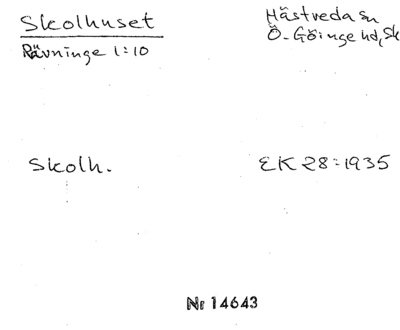 Skolhuset
Rävninge 1:10
Hästveda sn
Ö. Göinge hd, Sk
Skolh.
EK 28:1935
Nr 14643